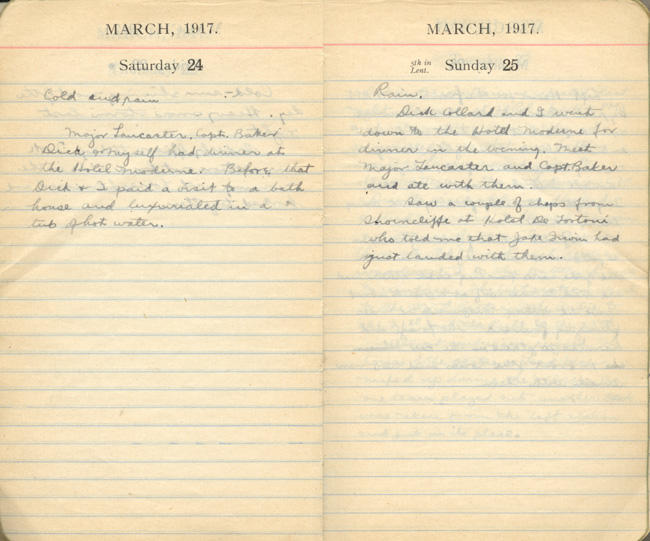 MARCH, 1917.
Saturday 24
Cold and rain –
Major Lancaster, Capt. Baker
Dick & myself had dinner at
the Hotel Moderne. Before that
Dick & I paid a visit to a bath
house and luxuriated in a
tub of hot water.
MARCH, 1917.
5th in
Lent.
Sunday 25
Rain.
Dick Collard and I went
down to the Hotel Moderne for
dinner in the evening. Meet
Major Lancaster and Capt. Baker
and ate with them.
Saw a couple of chaps from
Shorncliffe at Hotel De Tortoni
who told me that Jake Irwin had
just landed with them.